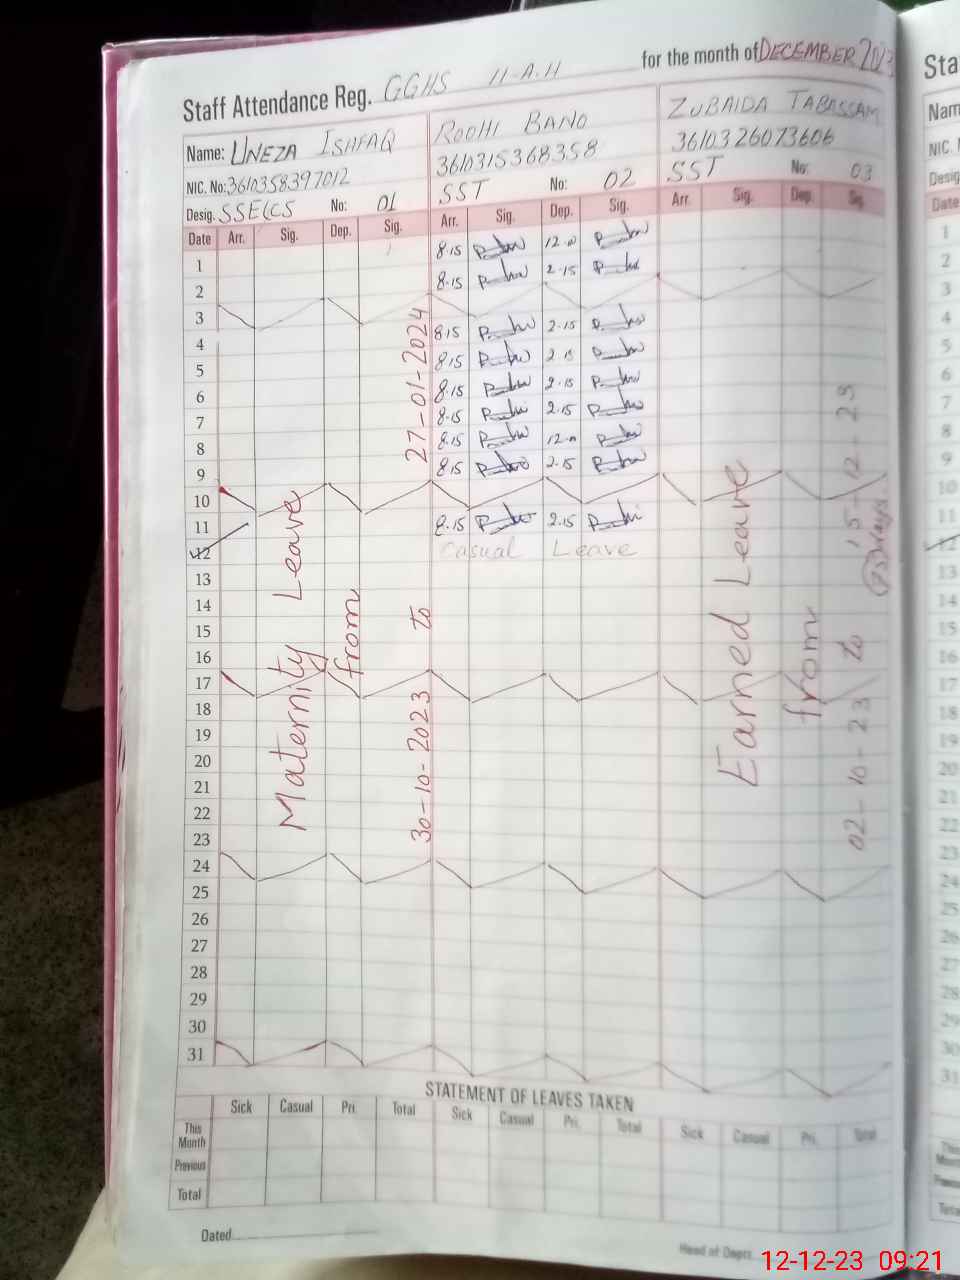 Staff Attendance Reg. GGHS 11-A.H for the month of DECEMBER 2023
Name: UNEZA ISHFAQ
NIC. No: 3610358397012
Desig. SSE(CS No: 01
ROOHI BANO
3610315368358
SST No: 02
ZUBAIDA TABASSAM
3610326073606
SST No: 03
Date Arr. Sig. Dep. Sig. Arr. Sig. Dep. Sig. Arr. Sig. Dep. Sig.
1 8.15 12.
2 8.15 2.15
3
4 8.15 2.15
5 8.15 2.15
6 8.15 2.15
7 8.15 2.15
8 8.15 12.
9 8.15 2.15
10
11 8.15 2.15
12 Casual Leave
13
14
15
16
17
18
19
20
21
22
23
24
25
26
27
28
29
30
31
Maternity Leave
from
30-10-2023 to 27-01-2024
Earned Leave
from
02-10-23 to 15-12-23
STATEMENT OF LEAVES TAKEN
Sick Casual Pri. Total Sick Casual Pri. Total Sick Casual Pri. Total
This Month
Previous
Total
Dated
Head of Deptt.
Sta
Nam
NIC. N
Desig
Date
1
2
3
4
5
6
7
8
9
10
11
12
13
14
15
16
17
18
19
20
21
22
23
24
25
26
27
28
29
30
31
12-12-23 09:21